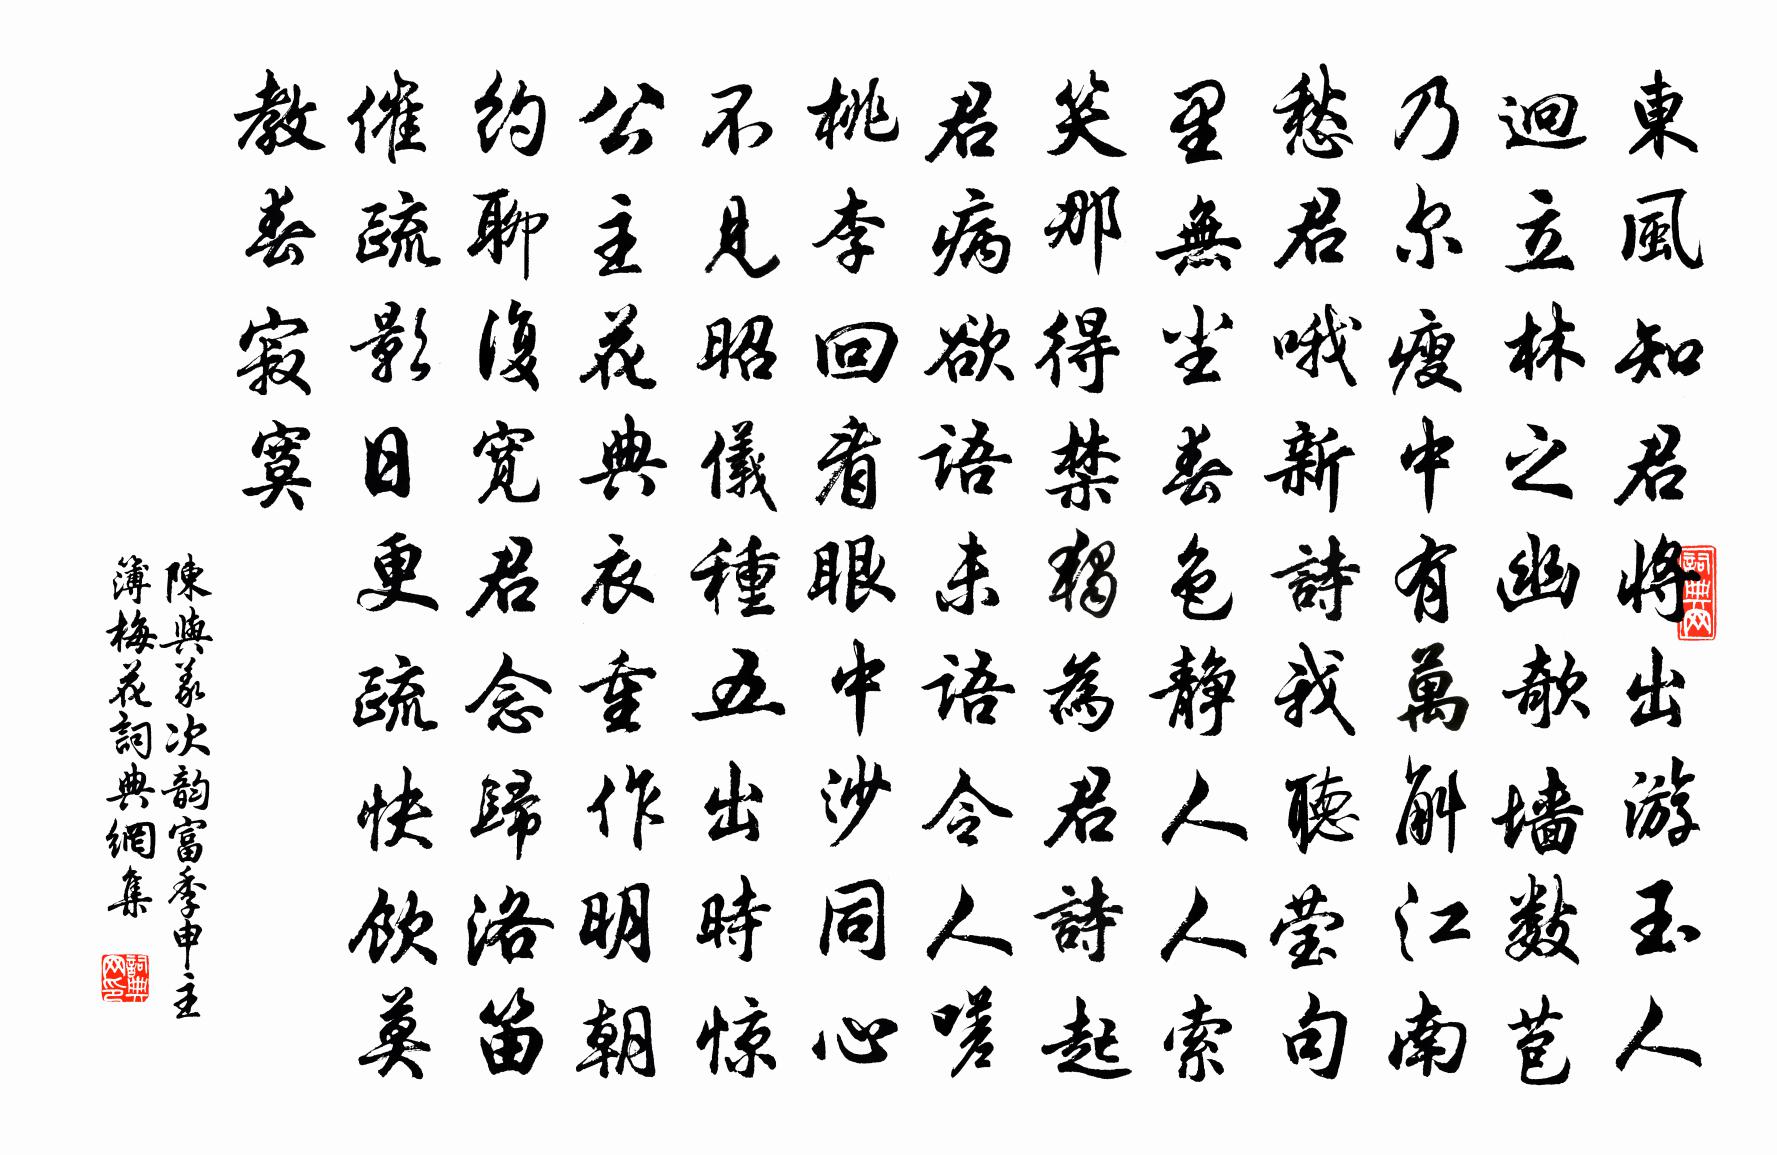 東風知君將出游玉人
迥立林之幽欹墙數苞
乃尔瘦中有萬斛江南
愁君哦新詩我聽莹句
里無尘春色静人人索
笑那得禁獨為君詩起
君病欲語未語令人嗟
桃李回看眼中沙同心
不見昭儀種五出時惊
公主花典衣重作明朝
約聊復寬君念歸洛笛
催疏影日更疏快飲莫
教春寂寞
陳與義次韵富季申主
簿梅花詞典網集
詞典网
詞典网